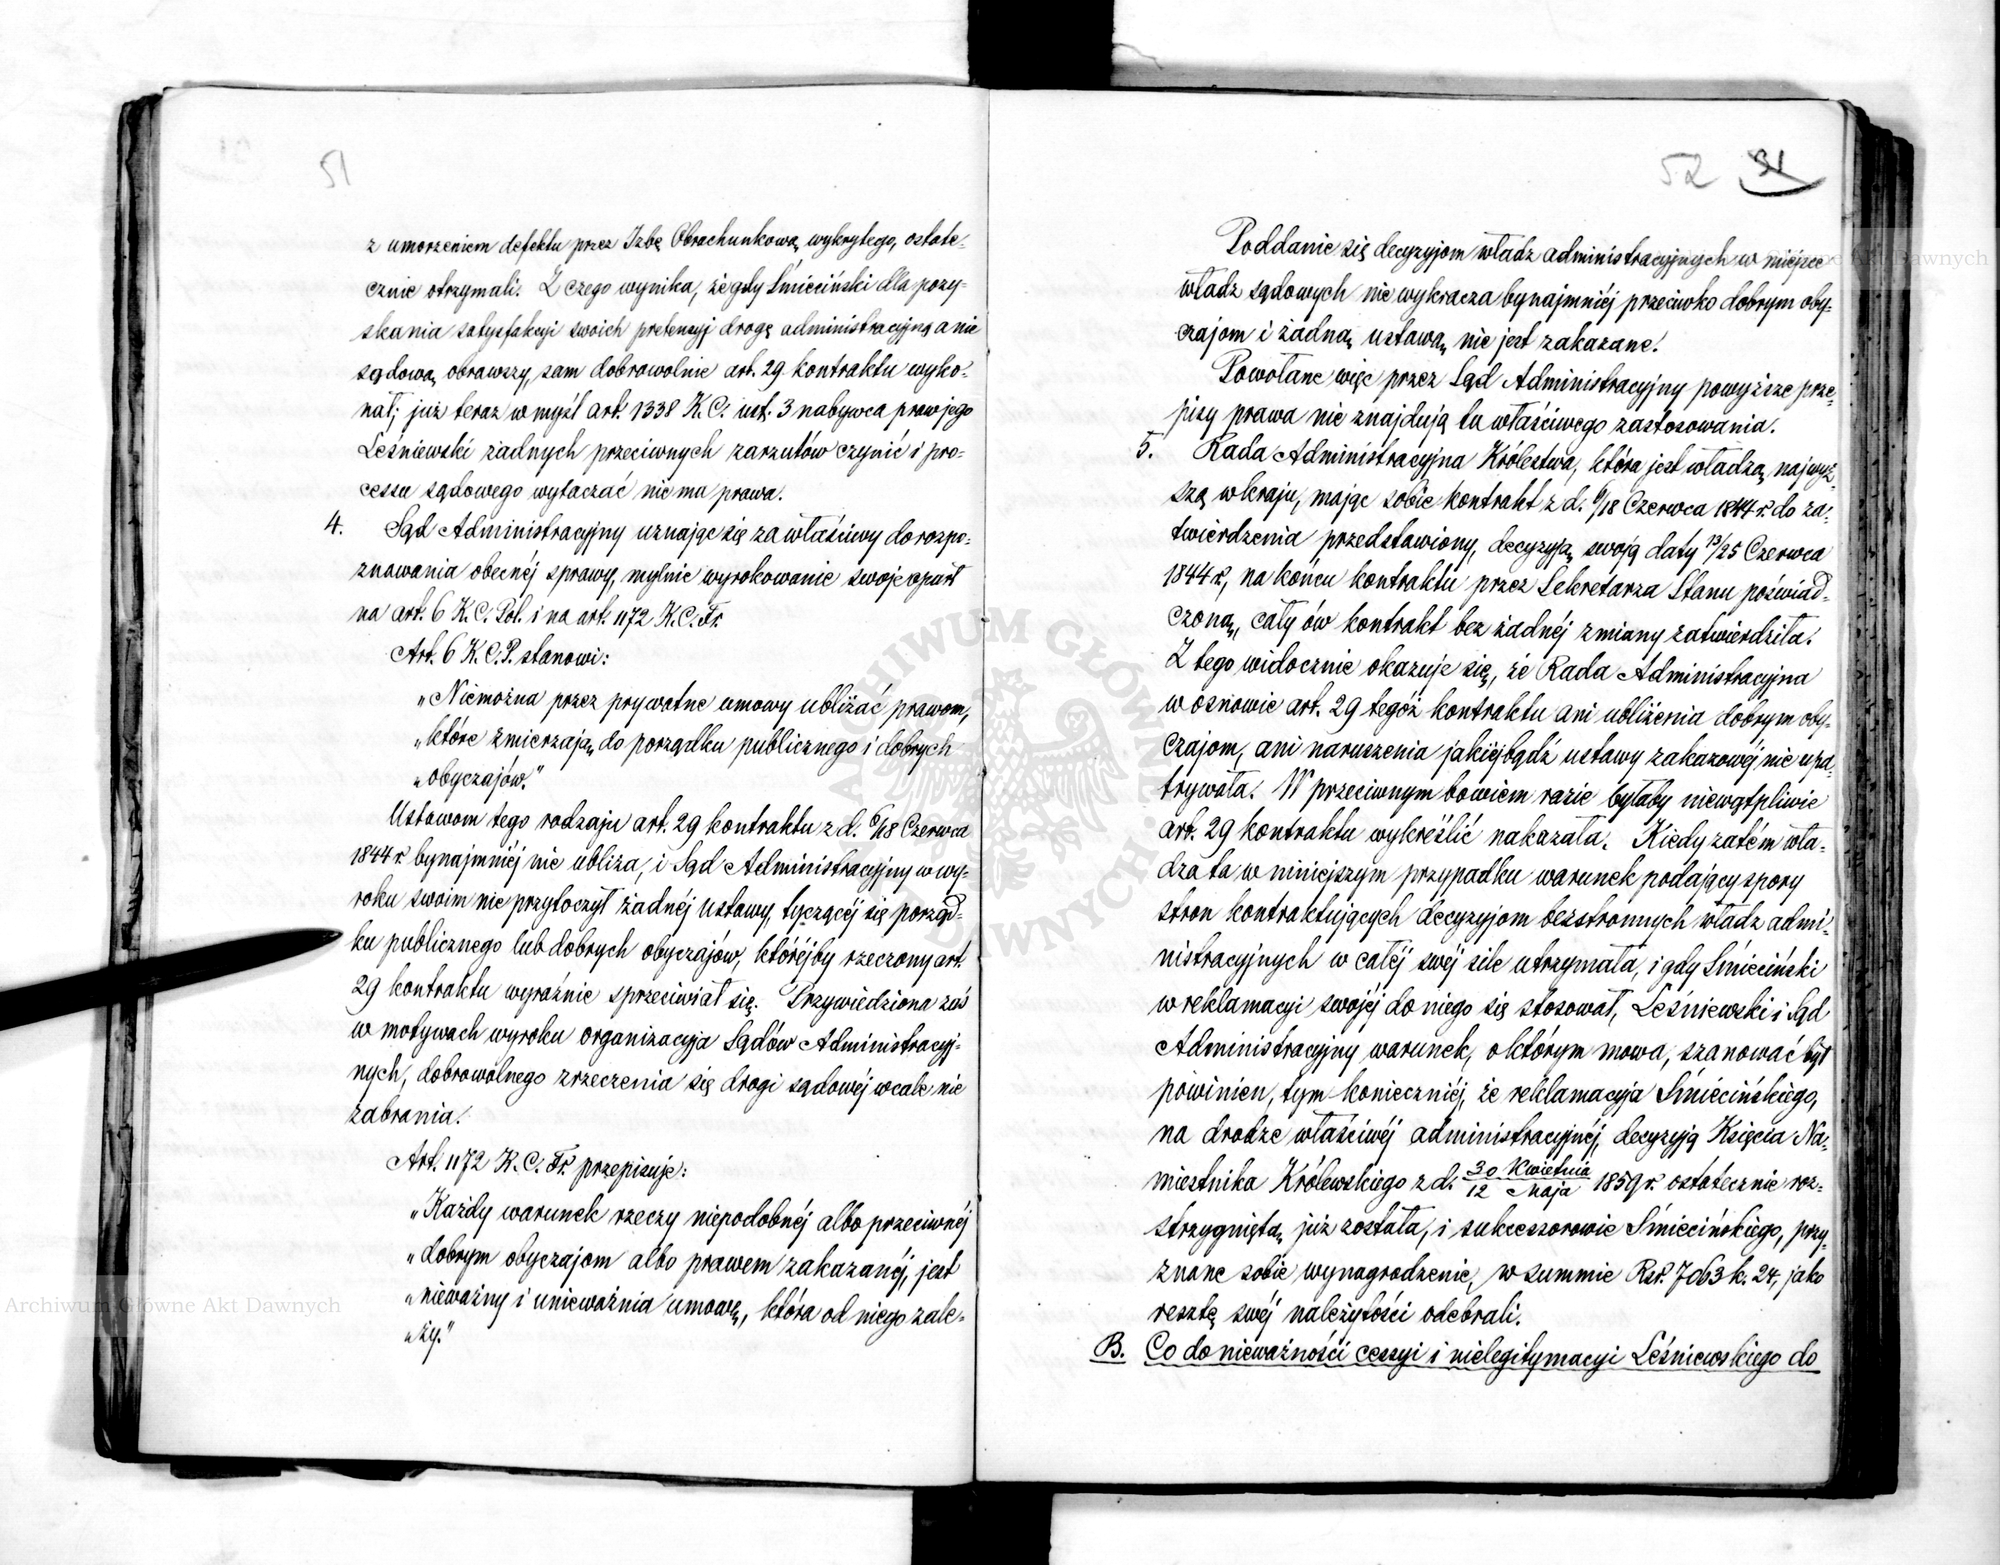 51
z umorzeniem defektu przez Izbę Obrachunkową wykrytego, ostate-
cznie otrzymali. Z czego wynika, że gdy Śmieciński dla pozy-
skania satysfakcyi swoich pretensyj drogę administracyjną a nie
sądową obrawszy, sam dobrowolnie art. 29 kontraktu wyko-
nał; już teraz w myśl art. 1338 K.C. ust. 3 nabywca praw jego
Leśniewski żadnych przeciwnych zarzutów czynić i pro-
cessu sądowego wytaczać nie ma prawa.
4. Sąd Administracyjny uznając się za właściwy do rozpo-
znawania obecnéj sprawy, mylnie wyrokowanie swoje oparł
na art. 6 K.C. Pol. i na art. 1172 K.C. Fr.
Art. 6 K.C.P. stanowi:
„Niemożna przez prywatne umowy ubliżać prawom,
„które zmierzają do porządku publicznego i dobrych
„obyczajów."
Ustawom tego rodzaju art. 29 kontraktu z d. 6/18 Czerwca
1844 r. bynajmniéj nie ubliża, i Sąd Administracyjny w wy-
roku swoim nie przytoczył żadnéj ustawy, tyczącéj się porząd-
ku publicznego lub dobrych obyczajów, któréjby rzeczony art.
29 kontraktu wyraźnie sprzeciwiał się. Przywiedziona zaś
w motywach wyroku organizacyja Sądów Administracyj-
nych, dobrowolnego zrzeczenia się drogi sądowéj wcale nie
zabrania.
Art. 1172 K.C. Fr. przepisuje:
„Każdy warunek rzeczy niepodobnéj albo przeciwnéj
„dobrym obyczajom albo prawem zakazanéj, jest
„nieważny i unieważnia umowę, która od niego zale-
„ży."
52 31
Poddanie się decyzyjom władz administracyjnych w miejsce
władz sądowych nie wykracza bynajmniéj przeciwko dobrym oby-
czajom i żadną ustawą nie jest zakazane.
Powołane więc przez Sąd Administracyjny powyższe prze-
pisy prawa nie znajdują tu właściwego zastosowania.
5. Rada Administracyjna Królestwa, która jest władzą najwyż-
szą w kraju, mając sobie kontrakt z d. 6/18 Czerwca 1844 r. do za-
twierdzenia przedstawiony, decyzyją swoją daty 13/25 Czerwca
1844 r., na końcu kontraktu przez Sekretarza Stanu poświad-
czoną, cały ów kontrakt bez żadnéj zmiany zatwierdziła.
Z tego widocznie okazuje się, że Rada Administracyjna
w osnowie art. 29 tegóż kontraktu ani ubliżenia dobrym oby-
czajom, ani naruszenia jakiéjbądź ustawy zakazowéj nie upa-
trywała. W przeciwnym bowiem razie byłaby niewątpliwie
art. 29 kontraktu wykreślić nakazała. Kiedy zatém wła-
dza ta w niniejszym przypadku warunek podający spory
stron kontraktujących decyzyjom bezstronnych władz admi-
nistracyjnych w całéj swéj sile utrzymała, i gdy Śmieciński
w reklamacyi swojéj do niego się stosował, Leśniewski i Sąd
Administracyjny warunek, o którym mowa, szanować był
powinien, tym konieczniéj, że reklamacyja Śmiecińskiego,
na drodze właściwéj administracyjnéj, decyzyją Księcia Na-
miestnika Królewskiego z d. 30 Kwietnia/12 Maja 1859 r. ostatecznie roz-
strzygniętą już została, i sukcessorowie Śmiecińskiego, przy-
znane sobie wynagrodzenie, w summie Rsr. 7063 k. 24, jako
resztę swéj należytości odebrali.
B. Co do nieważności cessyi i nielegitymacyi Leśniewskiego do
ARCHIWUM GŁÓWNE AKT DAWNYCH
Archiwum Główne Akt Dawnych
Archiwum Główne Akt Dawnych